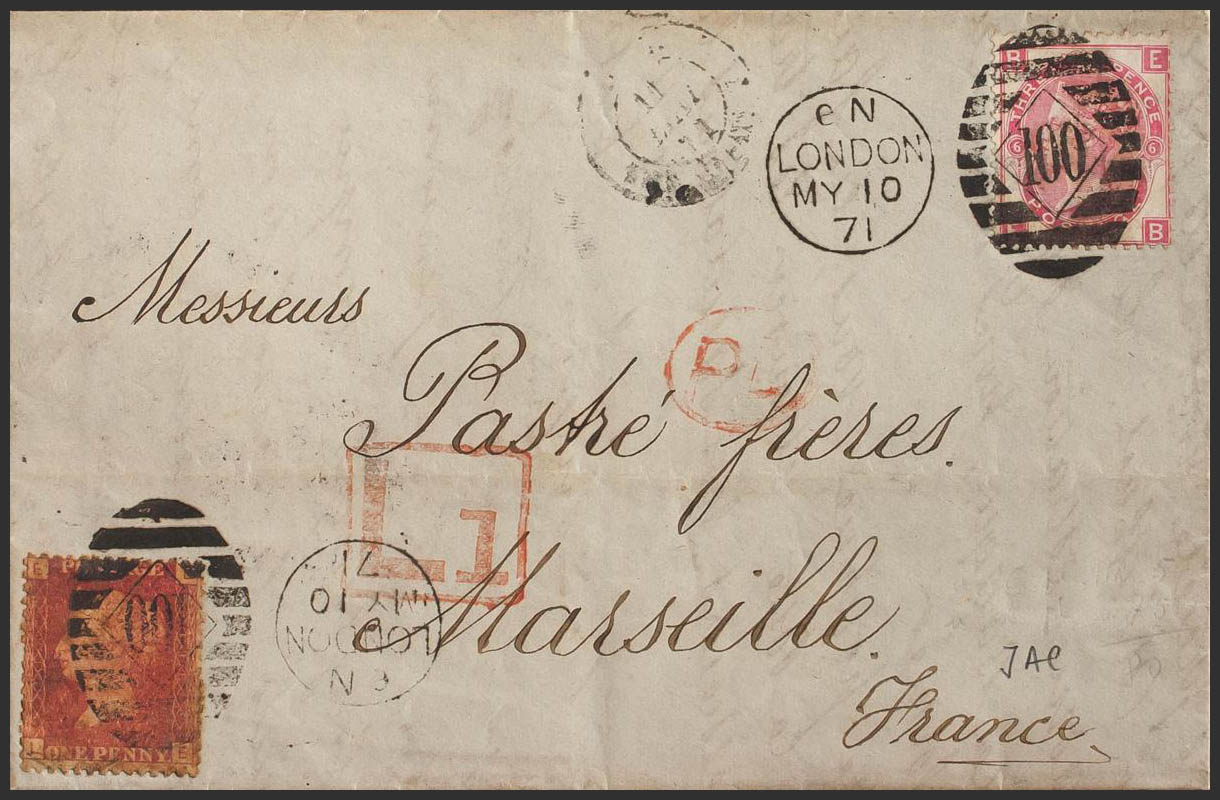 e N
LONDON
MY 10
71
100
E
THREE PENCE
6 6
B
Messieurs
Pastré frères.
L1
Marseille.
France
JAC
E
L ONE PENNY E
e N
LONDON
MY 10
71